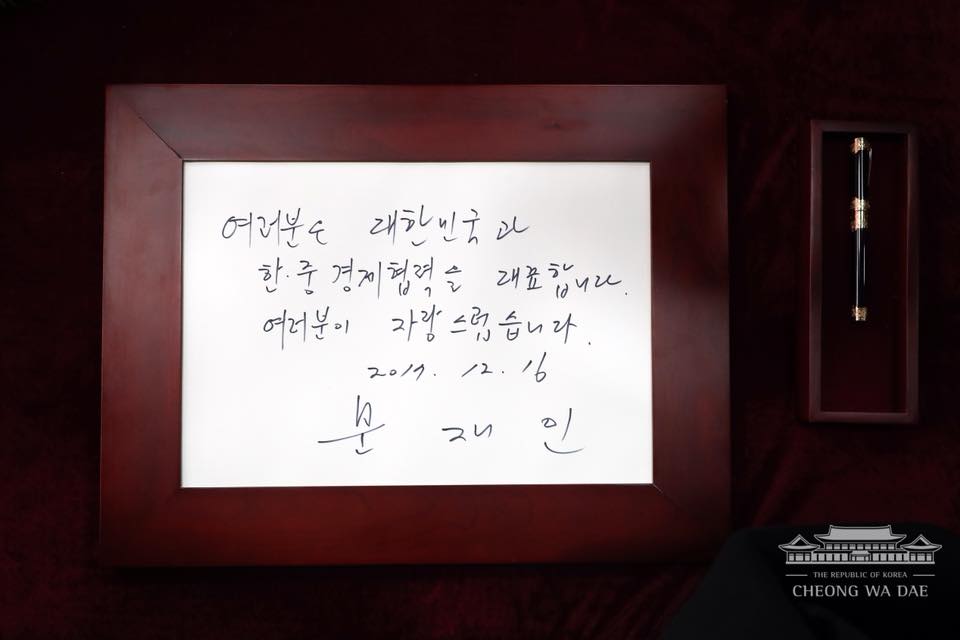 여러분은 대한민국과
한·중 경제협력을 대표합니다.
여러분이 자랑스럽습니다.
2017. 12. 16
문재인
THE REPUBLIC OF KOREA
CHEONG WA DAE